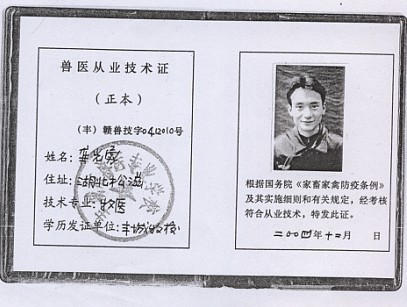 兽医从业技术证
（正本）
（丰）赣兽技字0412010号
姓名：
住址：湖北松滋
技术专业：牧医
学历发证单位：丰城
根据国务院《家畜家禽防疫条例》
及其实施细则和有关规定，经考核
符合从业技术，特发此证。
二00四年十二月 日